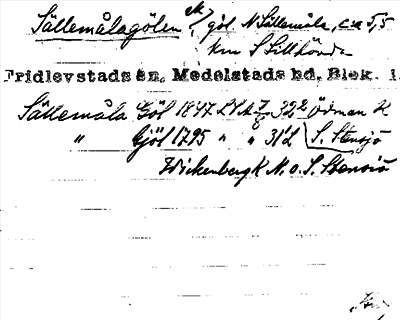 Sällemålagölen ek/? göl N Sällemåla, c:a 5,5
km S Sillhövda
Fridlevstads sn. Medelstads hd. Blek. l.
Sällemåla Göl 1847 LSA 32² Ödman K
" Gjöl 1795 " " 31¹ L S. Stensjö
Wickenberg K N. o. S. Stensjö